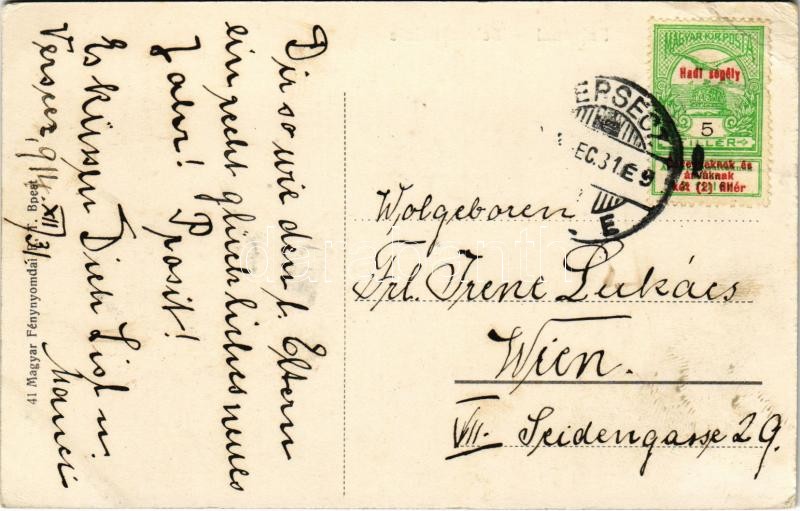 Dir so wie den l. Eltern
ein recht glückliches neues
Jahr! Prosit!
Es küssen Dich Lisl u.
Manci
Versecz, 914. XII/31
41 Magyar Fénynyomdai R.T. Bpest.
MAGYAR KIR. POSTA
Hadi segély
5
FILLÉR
Özvegyeknek és
árváknak
két (2) fillér
VERSECZ
DEC. 31 E 9
E
Wolgeboren
Frl. Irene Lukács
Wien.
VII. Seidengasse 29.
darabanth